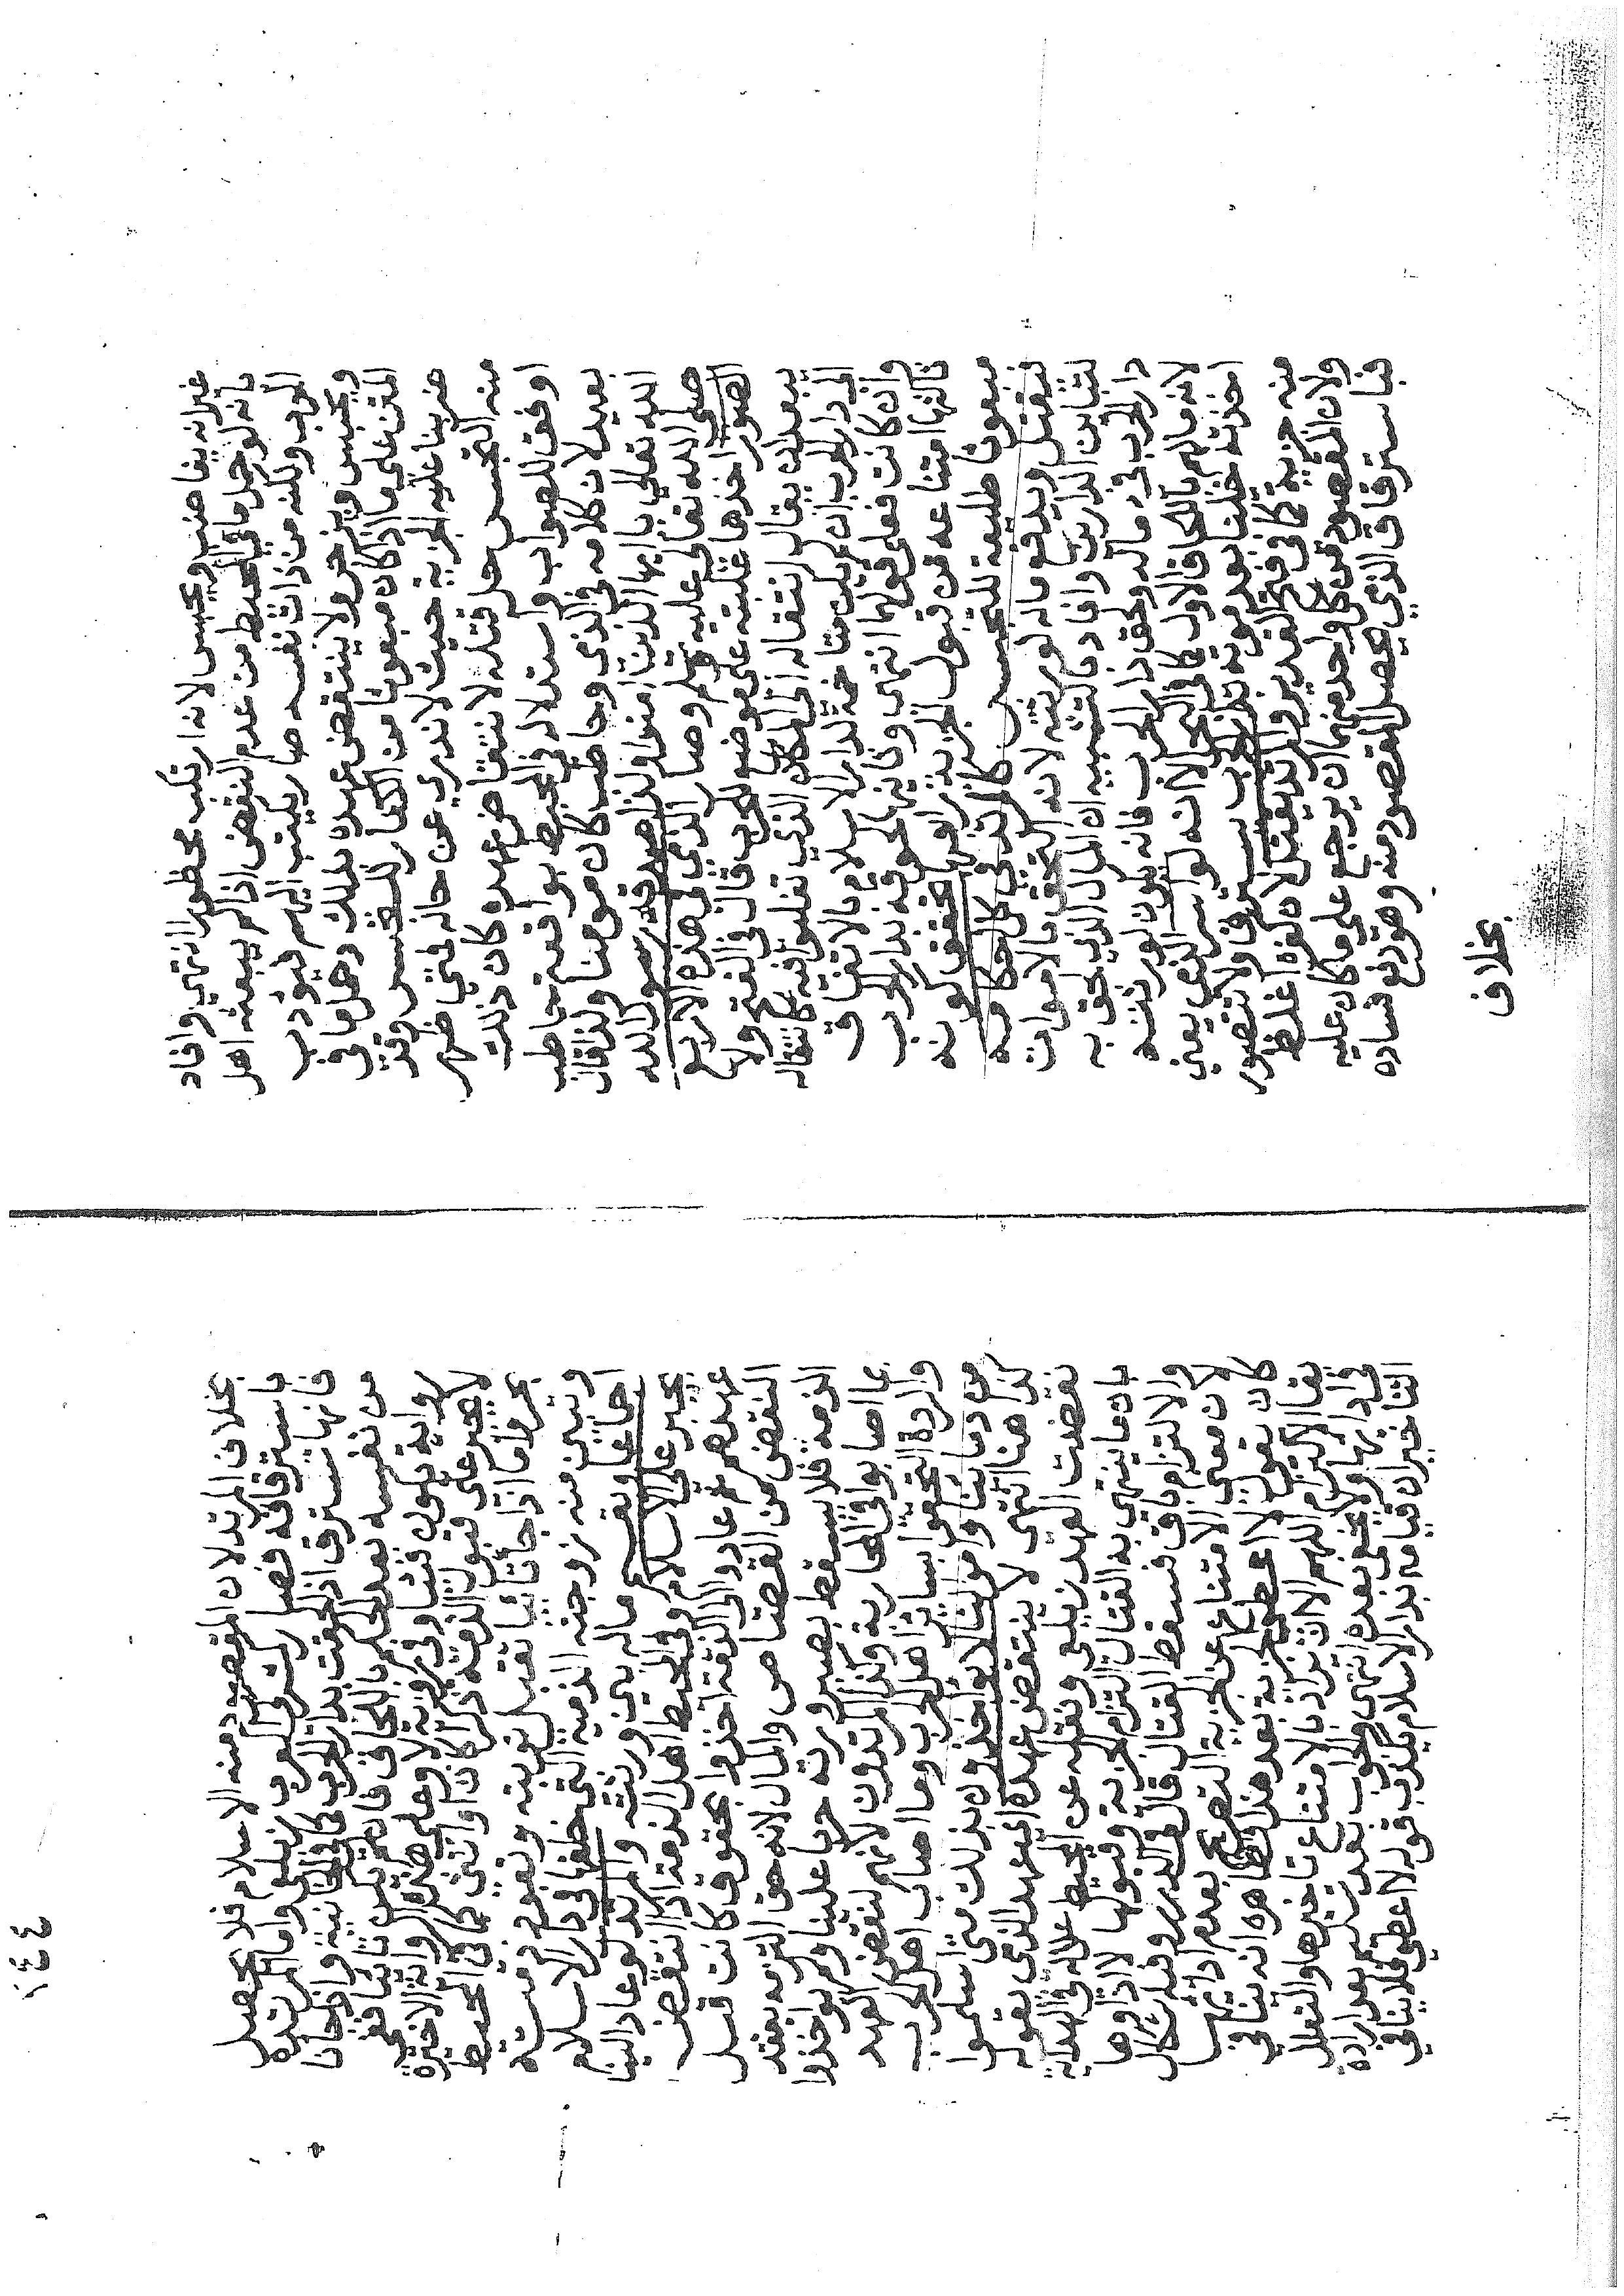 غيرانه يعاضب ويحبس لانه ارتكب محظورا انتهي وافاد
بانه لو حمل ما في المحيط من عدم النقض اذا لم يبعثه اهل
الحرب ولكنه من ذات نفسه صار يكتب اليهم فيؤدب
ويحبس ويزجر ولا ينتقض عهده بذلك وحمل ما في
المتن على ما اذا كان مبعوثا من الكفار للتجسس وقد
ضربنا عليه الجزية حيث لا ندري عن حاله فمتى ظهر
منه التجسس حل قتله لانتقاض عهده كان ذلك
اوفق للصواب واستدلال المحيط بواقعة حاطب
بعيد لان كلامه في الذمي وحاطب كان مومنا ولذا قال
الله تعالى يا ايها الذين امنوا ولذا صدقه رسول الله
صلى الله تعالى عليه وسلم وصار الذمي في هذه الاربع
الصور اخذها غلبته على موضع للحرب قال في الفتح ولا
يبعد ان يقال انتقاله الى المكان الذي تغلبوا فيه كانتقاله
الى دار الحرب ان لم يكن متاخمة لدار الاسلام بالاتفاق
وان كانت فعلى قولهما انتهى وثانيها لحوقه بدار الحرب
ثالثها امتناعه من قبول الجزية رابعها تحقق كونه
مبعوثا طليعة للتجسس كالمرتد في كل احكامه
فيقتل ويدفع ماله لورثته لانه التحق بالاموات
لتباين الدارين وافاد بالتشبيه ان المال الذي لحق به
دار الحرب في ء ماله ولحق دار الحرب فانه يكون لورثته
لانه مالهم بالحاق الاول كما في البحر الا انه لو اسر الذمي يعني
اخذته خيلنا بعد موته بدار الحرب يسترق ولا تتصور
منه جزية كما في فتح القدير والمرتد يقتل لان كفره اغلظ
ولان المقصود من كل واحد منهما ان يرجع على ما كان عليه
فباسترقاق الذمي يحصل المقصود منه وهو دفع فساده
بخلاف
١٤٤
بخلاف المرتد لان المقصود منه الاسلام فلا يحصل
باسترقاقه فصار كمشركي العرب زيلعي واما المرتدة
فانها تسترق اذا لحقت بدار الحرب كما في الخانية واذا جانا
من نفسه بعد الحكم بالحاق فانه يكون تائبا ففي
رواية يكون فيئا وفي رواية لا وعلى هذه الرواية الاخيرة
لا يجبر على قبول الذمة ذكرا كان او انثى كما في المحيط
بحر واما اذا جانا تائبا تقبل توبته وتعود ذمته
وتبين منه زوجته الذمية التي خلفها في دار الاسلام
اجماعا ويقسم ماله بين ورثته والمرتد لو عاد الينا
يجبر على الاسلام وفي المحيط اهل الذمة اذا انتقض
عهدهم ثم عادوا الى الذمة اخذوا بحقوق كانت قبل
النقض من القصاص والمال لانه حق التزمه بعقد
الذمة فلا يسقط بصيرورته حربا علينا ولم يواخذوا
بما اصابوا في المحاربة وكذا المرتدون لانهم بنقض العهد
والردة التحقوا بسائر اهل الحرب وما اصاب اهل الحرب
من دمائنا واموالنا لا يواخذون بذلك متى اسلموا
كذا هنا انتهى لا ينتقض عهده اي عهد الذمي بقوله
نقضت العهد زيلعي ونقله عن المحيط علله في الهداية
بان ما ينتهي به القتال التزام الجزية وقبولها لا اداوها
والالتزام باق فسقط القتال قال في الدرر وفيه اشكال
لان معنى الامتناع عن الجزية التصريح بعدم ادائها
كان يقول لا اعطي الجزية بعد هذا وظاهره انه ينافي
بقا الالتزام اللهم الا ان يراد بالامتناع تاخيرها والتعلل
في ادائها ولا يخفى بعده انتهى والجواب بعد تسليم ارادة
التاخير ان قيامه بدار الاسلام يكذب قوله لا اعطي فلا ينافي